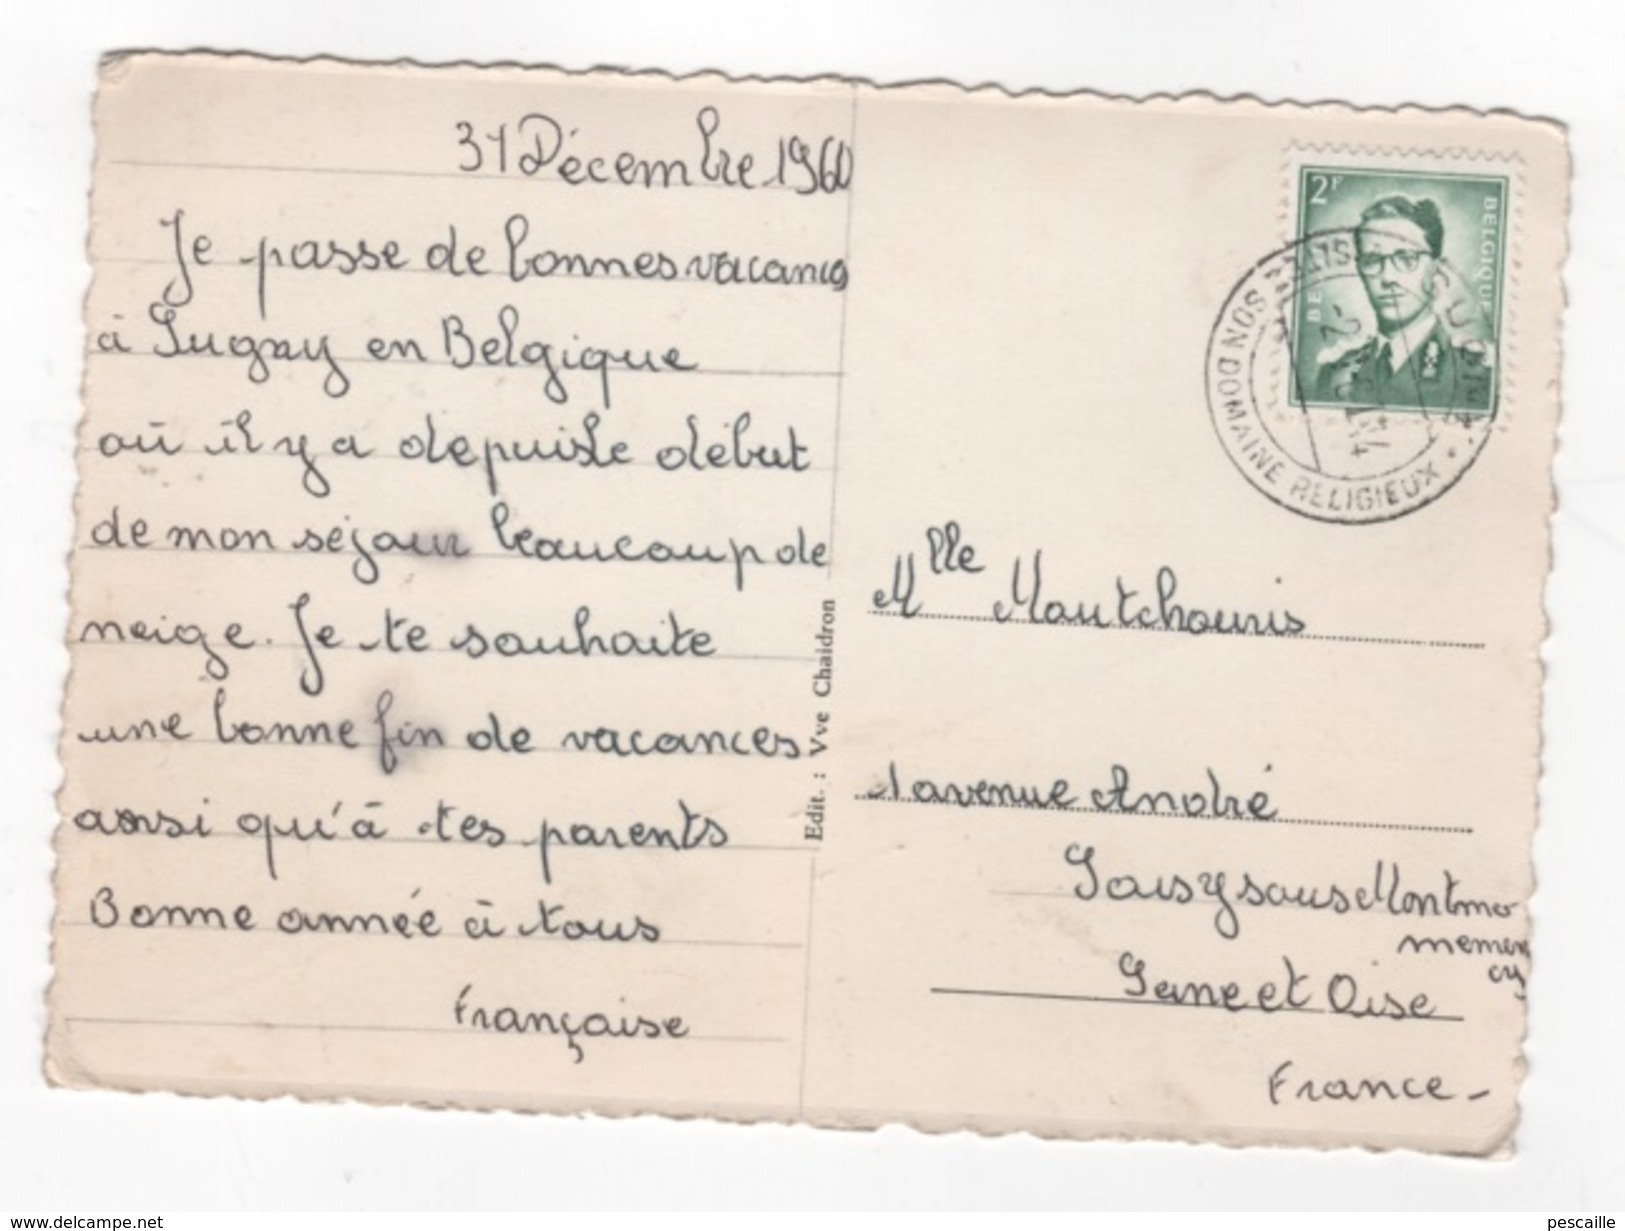 31 Décembre 1960
Je passe de bonnes vacances
à Sugny en Belgique
où il y a depuis le début
de mon séjour beaucoup de
neige. Je te souhaite
une bonne fin de vacances
ainsi qu'à tes parents
Bonne année à tous
Française
Edit. : Vve Chaidron
2F
BELGIQUE
SON DOMAINE RELIGIEUX
Mlle Moutchouris
1 avenue André
Soisy sous Montmo
memen
cy
Seine et Oise
France -
www.delcampe.net
pescaille